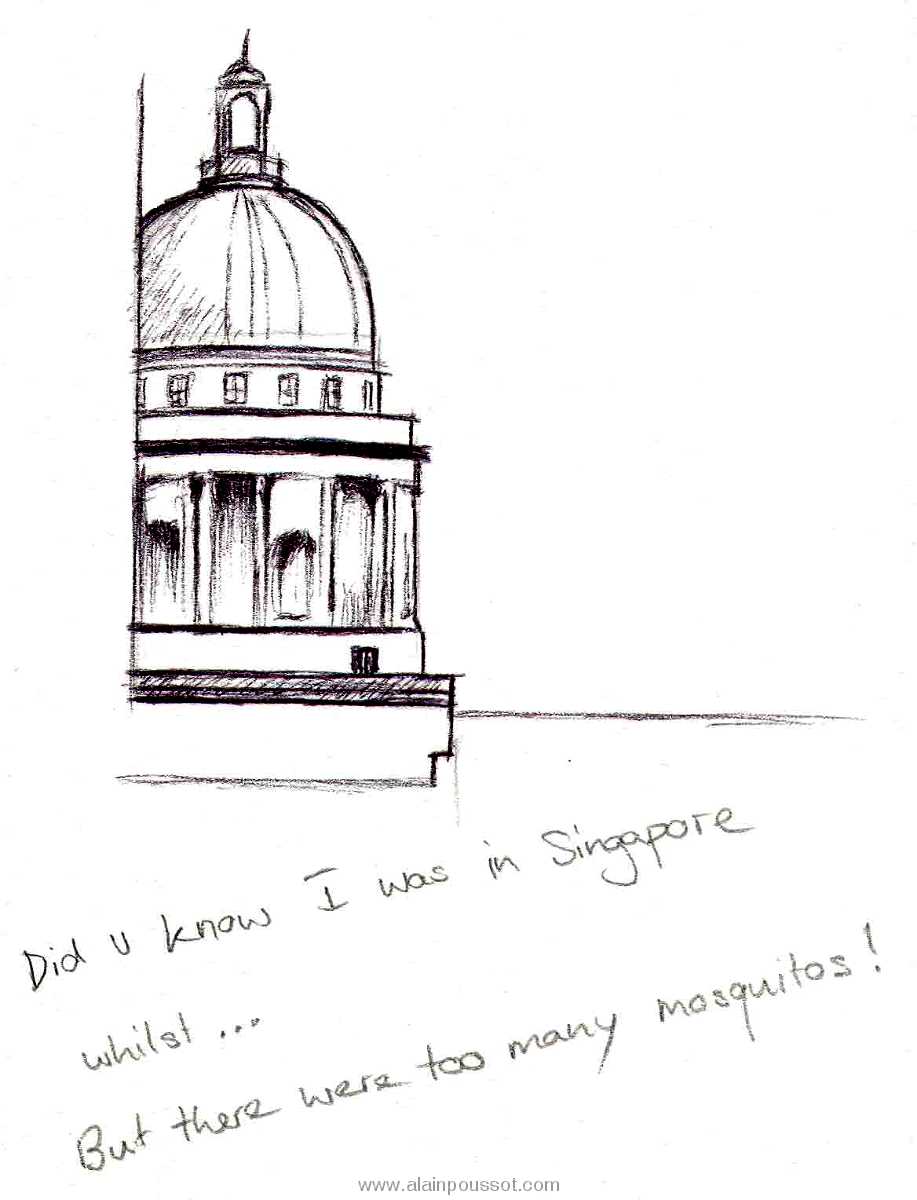 Did u know I was in Singapore
whilst ...
But there were too many mosquitos!
www.alainpoussot.com